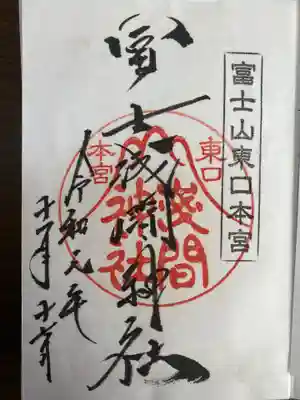 富士山東口本宮
冨士浅间神社
東口
本宮
浅間
神社
令和元年
十一月十六日